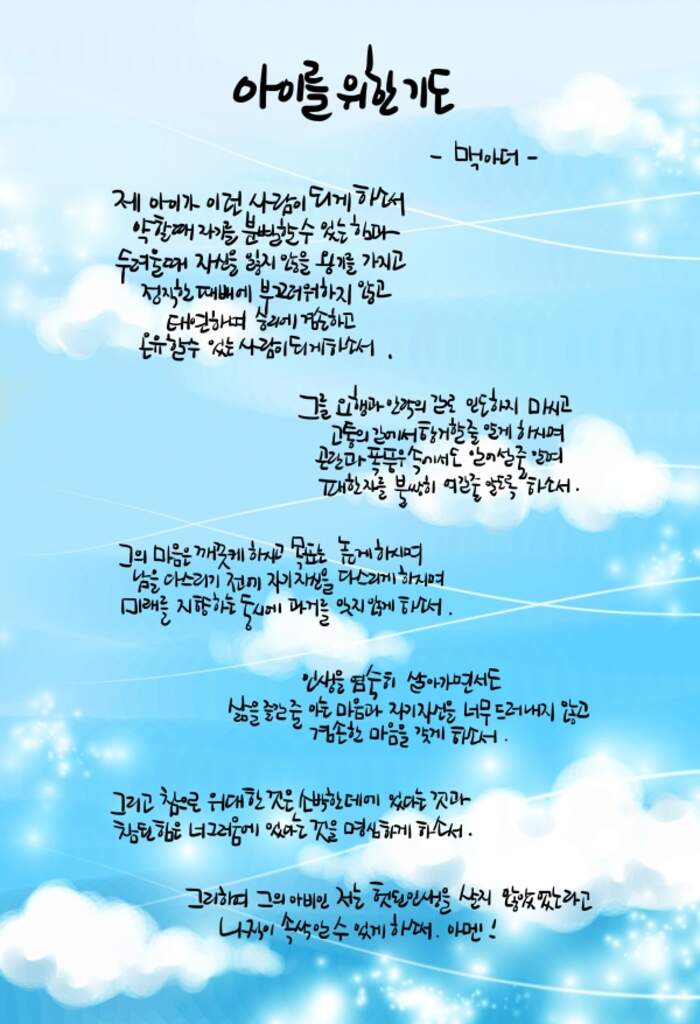 아이를 위한 기도
- 맥아더 -
제 아이가 이런 사람이 되게 하소서
약할때 자기를 분별할수 있는 힘과
두려울때 자신을 잃지 않을 용기를 가지고
정직한 패배에 부끄러워하지 않고
태연하며 승리에 겸손하고
온유할수 있는 사람이 되게하소서.
그를 요행과 안락의 길로 인도하지 마시고
고통의 길에서 항거할줄 알게 하시며
곤란과 폭풍우속에서도 일어설줄 알며
패한자를 불쌍히 여길줄 알도록 하소서.
그의 마음은 깨끗케 하시고 목표는 높게하시며
남을 다스리기 전에 자기자신을 다스리게하시며
미래를 지향하는 동시에 과거를 잊지 않게 하소서.
인생을 엄숙히 살아가면서도
삶을 즐길줄 아는 마음과 자기자신을 너무 드러내지 않고
겸손한 마음을 갖게 하소서.
그리고 참으로 위대한 것은 소박한데에 있다는 것과
참된힘은 너그러움에 있다는 것을 명심하게 하소서.
그리하여 그의 아비인 저는 헛된인생을 살지 않았노라고
나직이 속삭일수 있게하소서. 아멘!